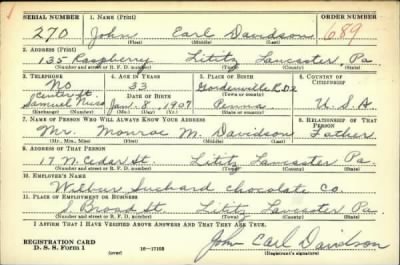 1
SERIAL NUMBER 1. NAME (Print) ORDER NUMBER
270 John Earl Davidson 689
(First) (Middle) (Last)
2. ADDRESS (Print)
135 Raspberry Lititz Lancaster Pa.
(Number and street or R. F. D. number) (Town) (County) (State)
3. TELEPHONE 4. AGE IN YEARS 5. PLACE OF BIRTH 6. COUNTRY OF CITIZENSHIP
No 33 Gordonville R.D.2
Center St.
DATE OF BIRTH
Samuel Jan. 8, 1907 Penna U.S.A
(Exchange) (Number) (Mo.) (Day) (Yr.) (State or country)
7. NAME OF PERSON WHO WILL ALWAYS KNOW YOUR ADDRESS 8. RELATIONSHIP OF THAT PERSON
Mr. Monroe M. Davidson Father
(Mr., Mrs., Miss) (First) (Middle) (Last)
9. ADDRESS OF THAT PERSON
17 N. Ceder St. Lititz Lancaster Pa
(Number and street or R. F. D. number) (Town) (County) (State)
10. EMPLOYER'S NAME
Wilbur Suchard Chocolate Co.
11. PLACE OF EMPLOYMENT OR BUSINESS
S. Broad St. Lititz Lancaster Pa.
(Number and street or R. F. D. number) (Town) (County) (State)
I AFFIRM THAT I HAVE VERIFIED ABOVE ANSWERS AND THAT THEY ARE TRUE.
REGISTRATION CARD
D. S. S. Form 1 16—17105 John Earl Davidson
(over) (Registrant's signature)